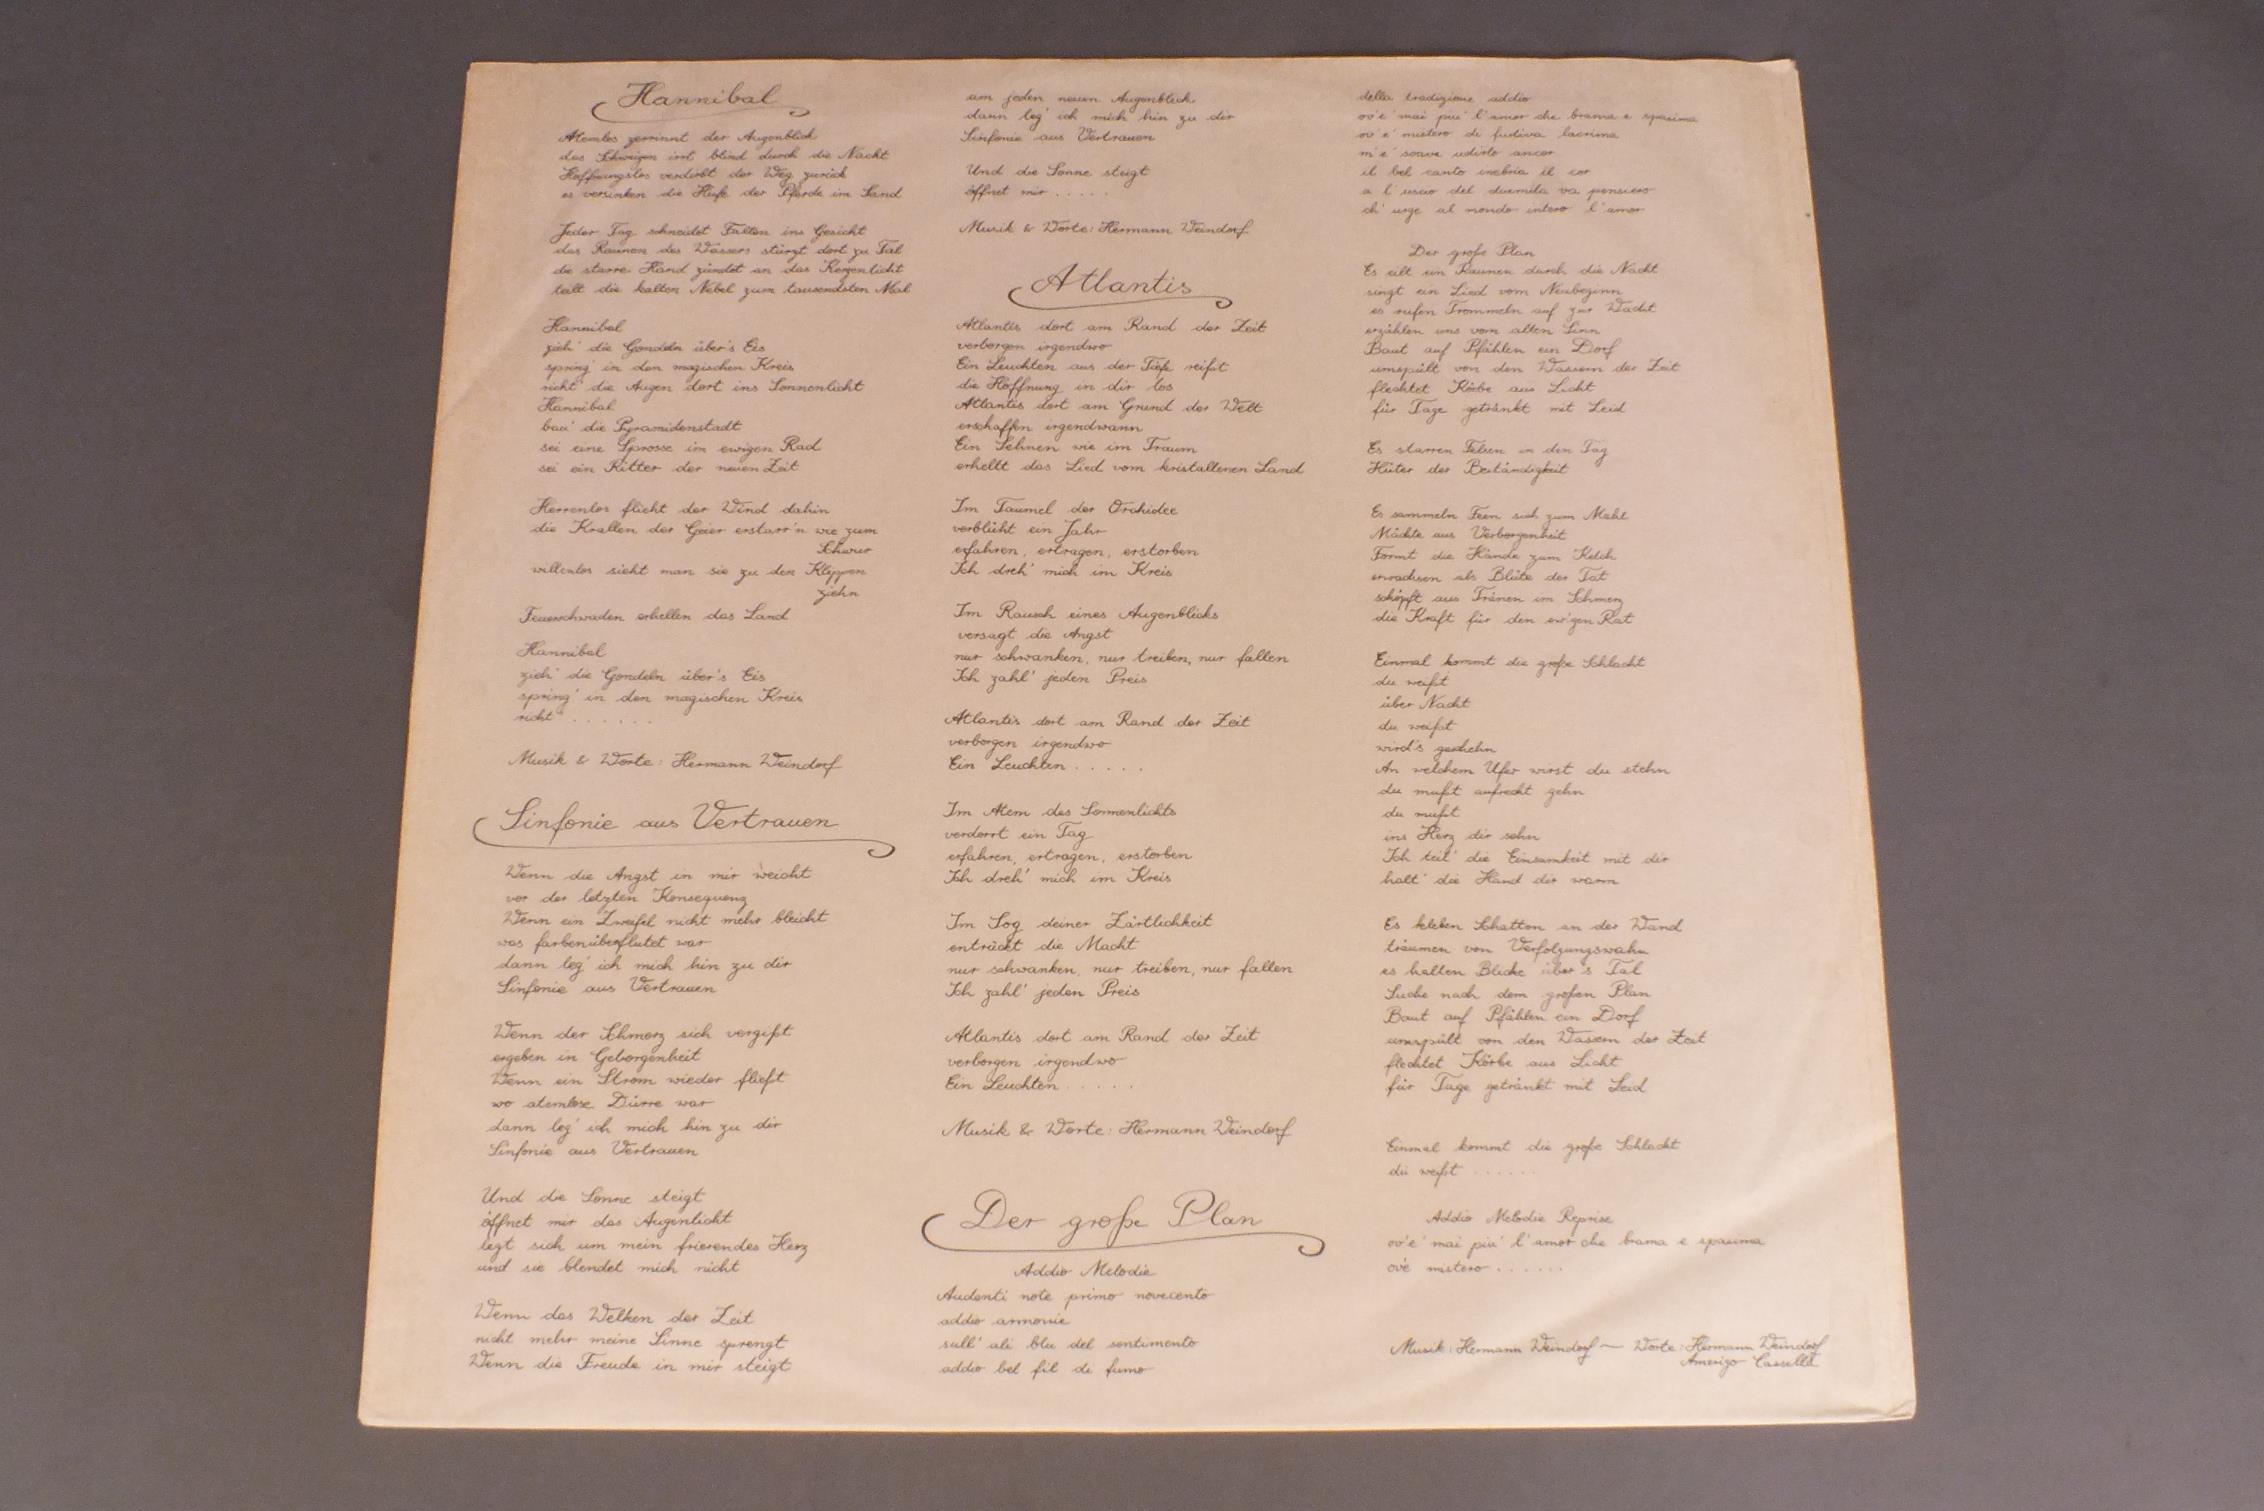 Hannibal
Atemlos zerrinnt der Augenblick
das Schweigen irrt blind durch die Nacht
Hoffnungslos verdirbt der Weg zurück
es versinken die Hufe der Pferde im Sand
Jeder Tag schneidet Falten ins Gesicht
das Raunen des Wassers stürzt dort zu Tal
die starre Hand zündet an das Kerzenlicht
teilt die kalten Nebel zum tausendsten Mal
Hannibal
zieh' die Gondeln über's Eis
spring' in den magischen Kreis
richt' die Augen dort ins Sonnenlicht
Hannibal
bau' die Pyramidenstadt
sei eine Sprosse im ewigen Rad
sei ein Ritter der neuen Zeit
Herrenlos flieht der Wind dahin
die Krallen der Geier erstarr'n wie zum
Schwur
willenlos sieht man sie zu den Klippen
ziehn
Feuerschwaden erhellen das Land
Hannibal
zieh' die Gondeln über's Eis
spring' in den magischen Kreis
richt' . . . . . .
Musik & Worte: Hermann Weindorf
Sinfonie aus Vertrauen
Wenn die Angst in mir weicht
vor der letzten Konsequenz
Wenn ein Zweifel nicht mehr bleicht
was farbenüberflutet war
dann leg' ich mich hin zu dir
Sinfonie aus Vertrauen
Wenn der Schmerz sich vergißt
ergeben in Geborgenheit
Wenn ein Strom wieder fließt
wo atemlose Dürre war
dann leg' ich mich hin zu dir
Sinfonie aus Vertrauen
Und die Sonne steigt
öffnet mir das Augenlicht
legt sich um mein frierendes Herz
und sie blendet mich nicht
Wenn das Welken der Zeit
nicht mehr meine Sinne sprengt
Wenn die Freude in mir steigt
um jeden neuen Augenblick
dann leg' ich mich hin zu dir
Sinfonie aus Vertrauen
Und die Sonne steigt
öffnet mir . . . . .
Musik & Worte: Hermann Weindorf
Atlantis
Atlantis dort am Rand der Zeit
verborgen irgendwo
Ein Leuchten aus der Tiefe reißt
die Hoffnung in dir los
Atlantis dort am Grund der Welt
erschaffen irgendwann
Ein Sehnen wie im Traum
erhellt das Lied vom kristallenen Land
Im Taumel der Orchidee
verblüht ein Jahr
erfahren, ertragen, erstorben
Ich dreh' mich im Kreis
Im Rausch eines Augenblicks
versagt die Angst
nur schwanken, nur treiben, nur fallen
Ich zahl' jeden Preis
Atlantis dort am Rand der Zeit
verborgen irgendwo
Ein Leuchten . . . . .
Im Atem des Sonnenlichts
verdorrt ein Tag
erfahren, ertragen, erstorben
Ich dreh' mich im Kreis
Im Sog deiner Zärtlichkeit
entrückt die Macht
nur schwanken, nur treiben, nur fallen
Ich zahl' jeden Preis
Atlantis dort am Rand der Zeit
verborgen irgendwo
Ein Leuchten . . . . .
Musik & Worte: Hermann Weindorf
Der große Plan
Addio Melodie
Audenti note primo novecento
addio armonie
sull' ali blu del sentimento
addio bel fil di fumo
della tradizione addio
ov'e' mai piu' l'amor che brama e spasima
ov'e' mistero di furtiva lacrima
m'e' soave udirlo ancor
il bel canto inebria il cor
a l'uscio del duemila va pensiero
ch' urge al mondo intero l'amor
Der große Plan
Es eilt ein Raunen durch die Nacht
singt ein Lied vom Neubeginn
es rufen Trommeln auf zur Wacht
erzählen uns vom alten Sinn
Baut auf Pfählen ein Dorf
umspült von den Wassern der Zeit
flechtet Körbe aus Licht
für Tage getränkt mit Leid
Es starren Felsen in den Tag
Hüter der Beständigkeit
Es sammeln Feen sich zum Mahl
Mächte aus Verborgenheit
Formt die Hände zum Kelch
erwachsen als Blüte der Tat
schöpft aus Tränen im Schmerz
die Kraft für den ew'gen Rat
Einmal kommt die große Schlacht
du weißt
über Nacht
du weißt
wird's geschehn
An welchem Ufer wirst du stehn
du mußt aufrecht gehn
du mußt
ins Herz dir sehn
Ich teil' die Einsamkeit mit dir
halt' die Hand dir warm
Es kleben Schatten an der Wand
träumen von Verfolgungswahn
es hallen Blicke über's Tal
Suche nach dem großen Plan
Baut auf Pfählen ein Dorf
umspült von den Wassern der Zeit
flechtet Körbe aus Licht
für Tage getränkt mit Leid
Einmal kommt die große Schlacht
du weißt . . . . . .
Addio Melodie Reprise
ov'e' mai piu' l'amor che brama e spasima
ov'e mistero . . . . . .
Musik: Hermann Weindorf — Worte: Hermann Weindorf
Amerigo Cassella